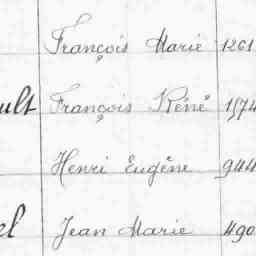 François Marie 1261
ult François Réné 1574
Henri Eugène 944
el Jean Marie 490